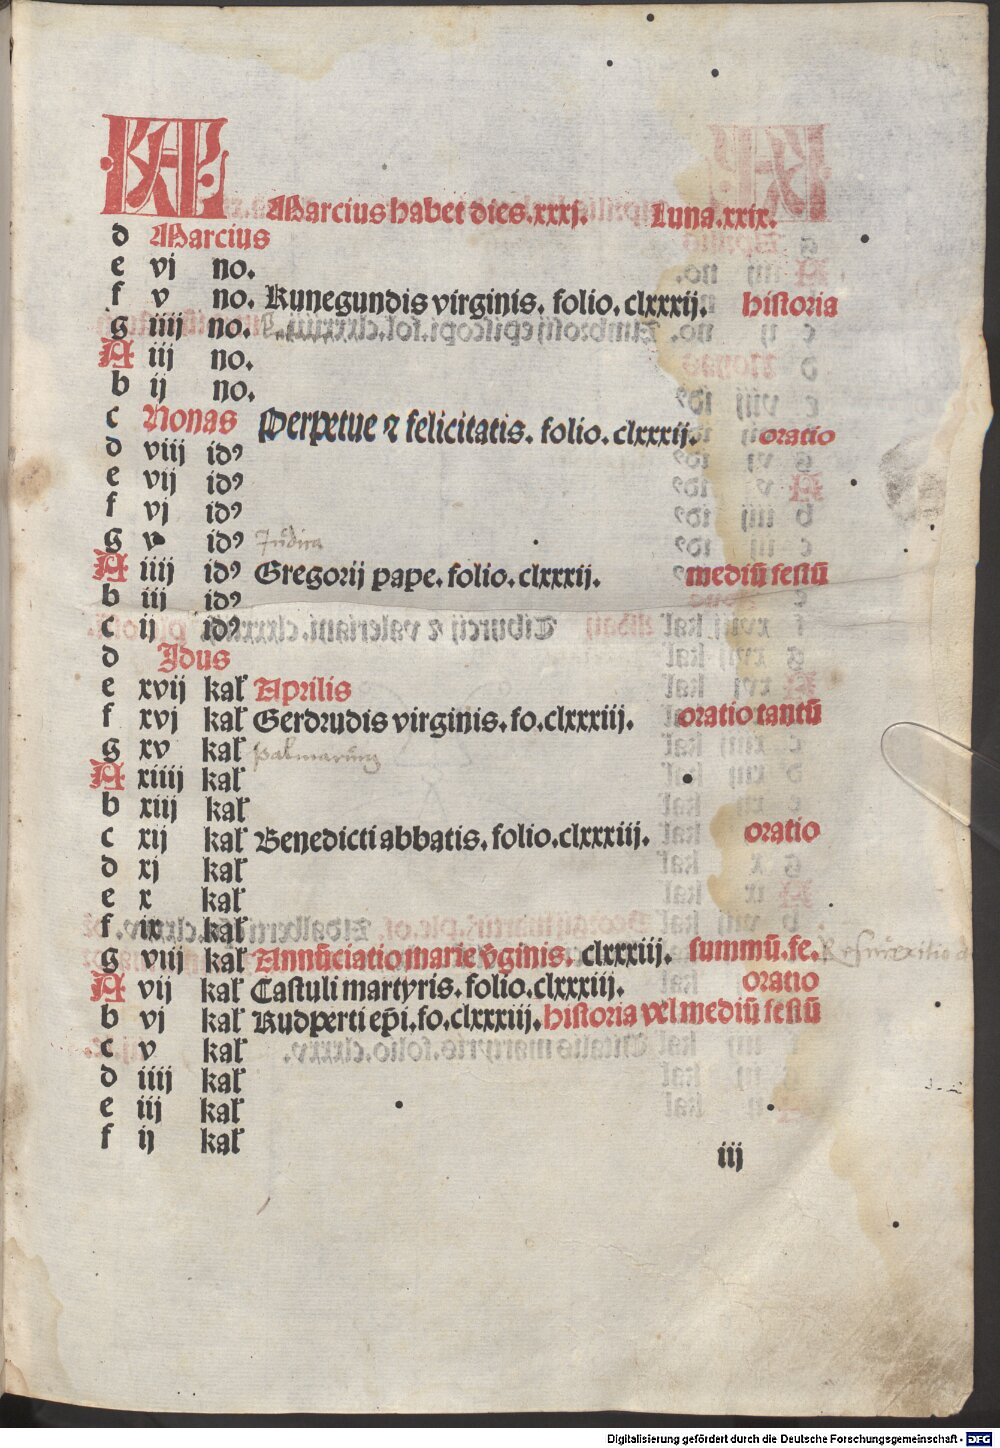 KAL
Marcius habet dies.xxxj. Luna.xxix.
d Marcius
e vj no.
f v no. Kunegundis virginis. folio. clxxxij. historia
g iiij no.
A iij no.
b ij no.
c Nonas Perpetue ⁊ felicitatis. folio. clxxxij. oratio
d viij idꝰ
e vij idꝰ
f vj idꝰ
g v idꝰ
A iiij idꝰ Gregorij pape. folio. clxxxij. mediū festū
b iij idꝰ
c ij idꝰ
d Jdus
e xvij kal' Aprilis
f xvj kal' Gerdrudis virginis. fo. clxxxiij. oratio tantū
g xv kal' palmarum
A xiiij kal'
b xiij kal'
c xij kal' Benedicti abbatis. folio. clxxxiij. oratio
d xj kal'
e x kal'
f ix kal'
g viij kal' Annūciatio marie v̄ginis. clxxxiij. summū. fe.
A vij kal' Castuli martyris. folio. clxxxiij. oratio
b vj kal' Rudperti ep̄i. fo. clxxxiij. historia vel mediū festū
c v kal'
d iiij kal'
e iij kal'
f ij kal'
iij
Digitalisierung gefördert durch die Deutsche Forschungsgemeinschaft - DFG